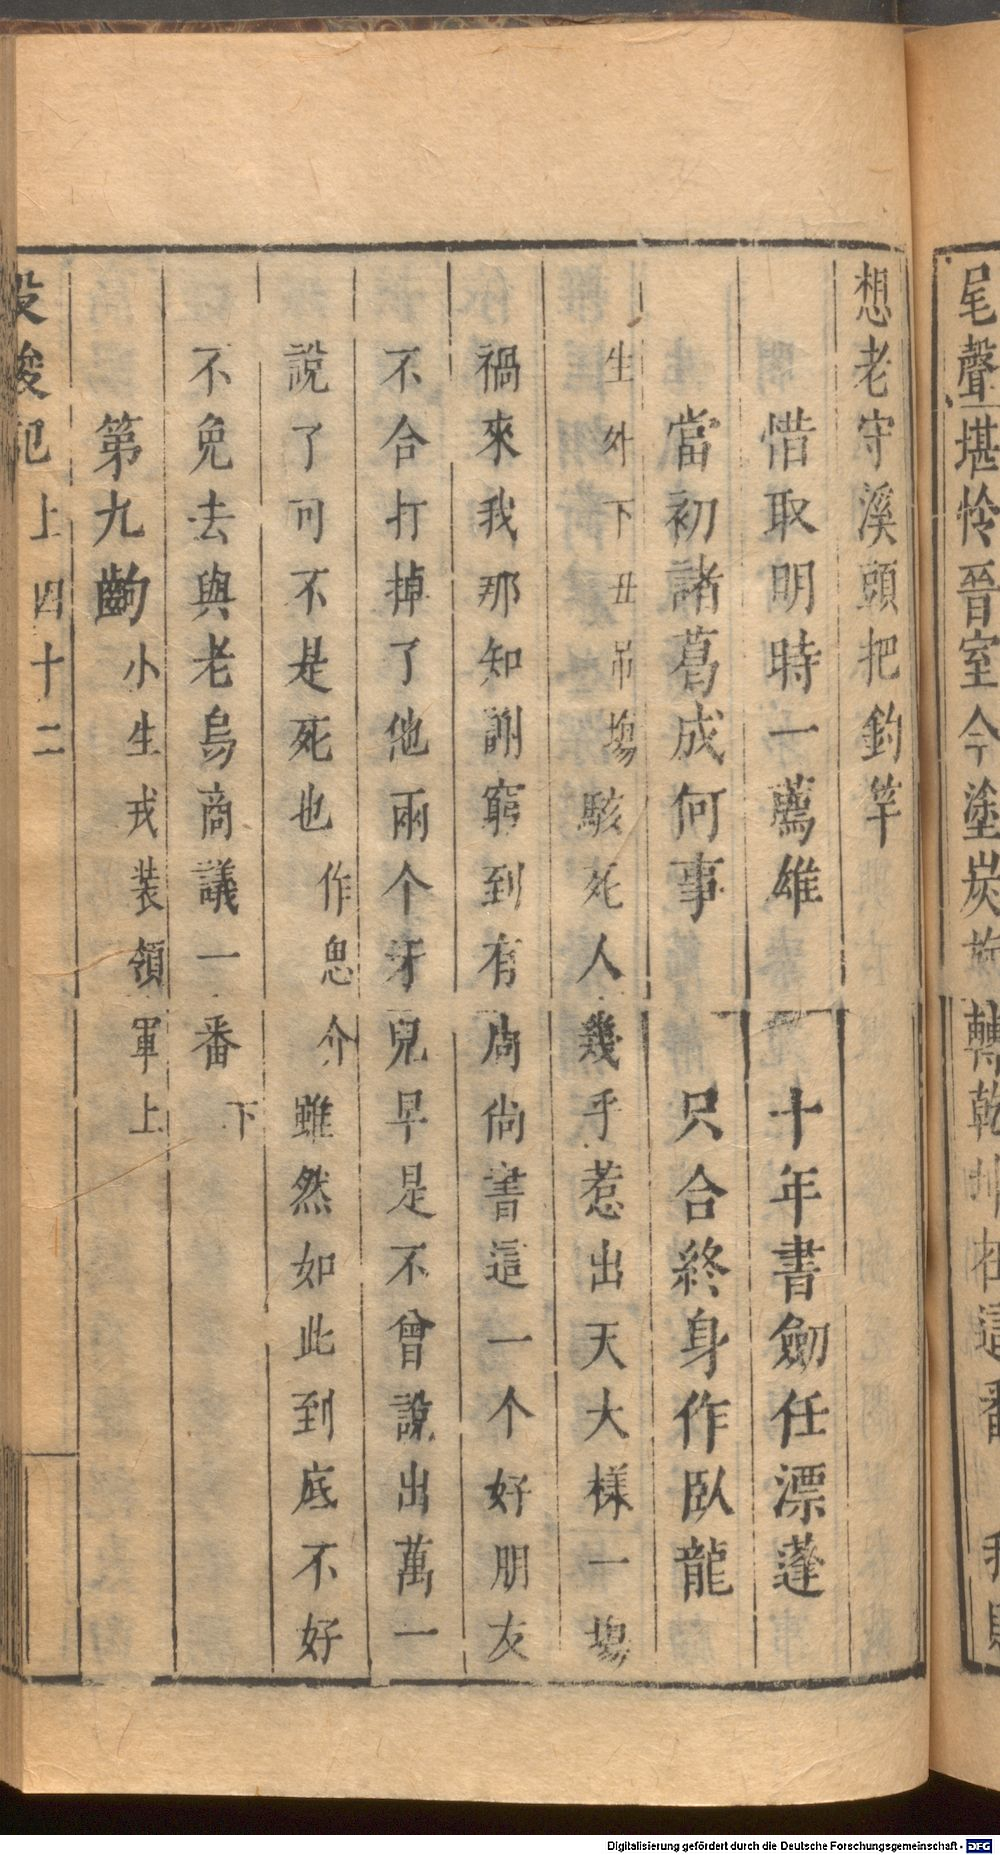 尾聲堪憐晉室今塗炭 轉乾 在這番 我
想老守溪頭把釣竿
惜取明時一薦雄 十年書劒任漂蓬
當初諸葛成何事 只合終身作臥龍
生外下丑吊塲駭死人幾乎惹出天大樣一塲
禍來我那知謝窮到有周尙書這一个好朋友
不合打掉了他兩个牙兒早是不曾說出萬一
說了可不是死也作思介雖然如此到底不好
不免去與老烏商議一番下
第九齣小生戎装領軍上
投梭記 上 四十二
Digitalisierung gefördert durch die Deutsche Forschungsgemeinschaft - DFG